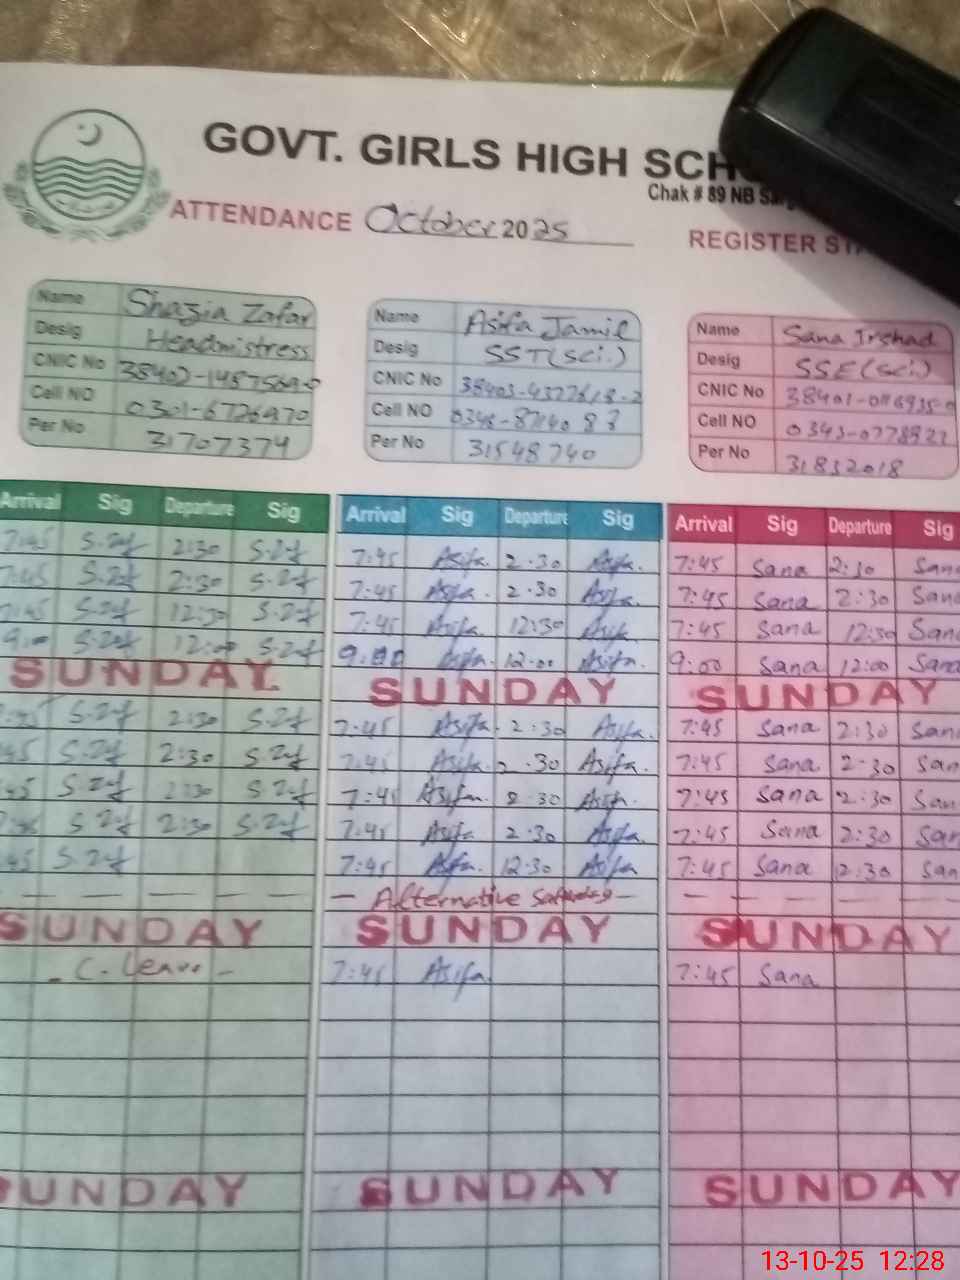 GOVT. GIRLS HIGH SCH
Chak # 89 NB
ATTENDANCE October 2025
REGISTER
Name Shazia Zafar
Desig Headmistress
CNIC No
Cell NO 0301-6726970
Per No 31707379
Name Asifa Jamil
Desig SST(Sci.)
CNIC No
Cell NO
Per No 31548740
Name Sana Irshad
Desig SSE(Sci)
CNIC No
Cell NO
Per No 31832018
Arrival Sig Departure Sig Arrival Sig Departure Sig Arrival Sig Departure Sig
7:45 2:30 7:45 Asifa. 2:30 Asifa. 7:45 Sana 2:30 Sana
7:45 2:30 7:45 Asifa. 2:30 Asifa. 7:45 Sana 2:30 Sana
7:45 12:30 7:45 Asifa. 12:30 Asifa 7:45 Sana 12:30 Sana
9:00 12:00 9.00 Asifa. 12:00 Asifa. 9:00 Sana 12:00 Sana
SUNDAY SUNDAY SUNDAY
2:30 7:45 Asifa. 2:30 Asifa. 7:45 Sana 2:30 Sana
45 2:30 7:45 Asifa. 2.30 Asifa. 7:45 Sana 2:30 San
45 2:30 7:45 Asifa. 2:30 Asifa. 7:45 Sana 2:30 San
2:30 7:45 Asifa 2:30 Asifa 7:45 Sana 2:30 San
45 7:45 Asifa. 12:30 Asifa 7:45 Sana 12:30 San
— — — — — Alternative Saturday — — — — —
SUNDAY SUNDAY SUNDAY
- C. Leave - 7:45 Asifa. 7:45 Sana
SUNDAY SUNDAY SUNDAY
13-10-25 12:28